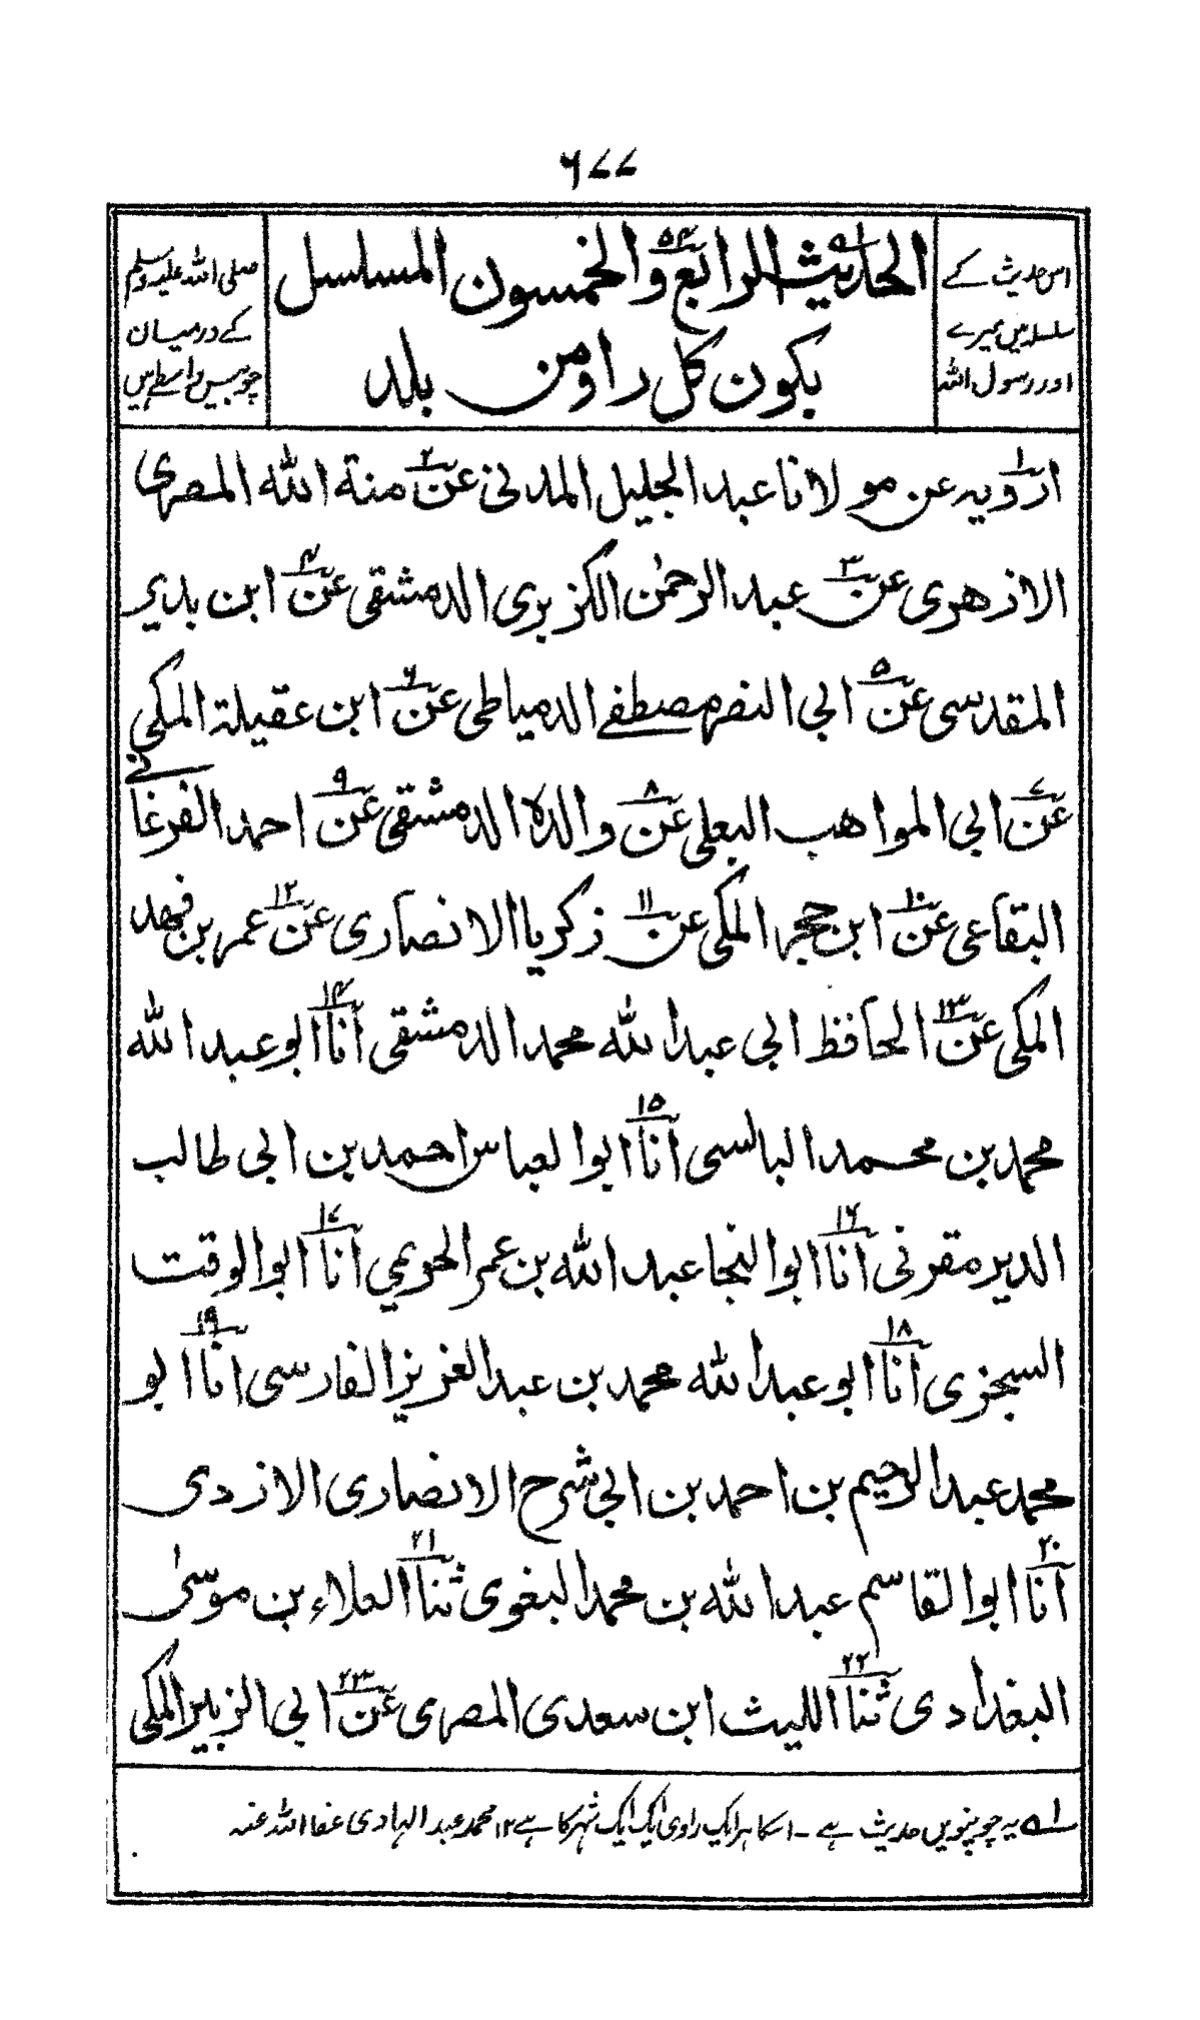 ۶۷۷
اس حدیث کے
سلسلہ میں میرے
اور رسول اللہ
الحديث الرابع والخمسون المسلسل
بكون كل راو من بلد
صلی اللہ علیہ وسلم
کے درمیان
چوبیس واسطے ہیں
ارويه عن مولانا عبد الجليل المدنی عن منة الله المصری
الازهری عن عبد الرحمٰن الكزبری الدمشقی عن ابن بدير
المقدسی عن ابی النصر مصطفے الدمیاطی عن ابن عقیلة المکی
عن ابی المواهب البعلی عن والده الدمشقی عن احمد الفرغانے
البقاعی عن ابن حجر المکی عن زکریا الانصاری عن عمر بن فهد
المکی عن الحافظ ابی عبد الله محمد الدمشقی انا ابو عبد الله
محمد بن محمد البالسی انا ابو العباس احمد بن ابی طالب
الدیر مقرنی انا ابو النجا عبد الله بن عمر الحریمی انا ابو الوقت
السجزی انا ابو عبد الله محمد بن عبد العزیز الفارسی انا ابو
محمد عبد الرحیم بن احمد بن ابی شرح الانصاری الازدی
انا ابو القاسم عبد الله بن محمد البغوی ثنا العلاء بن موسیٰ
البغدادی ثنا اللیث ابن سعدی المصری عن ابی الزبیر المکی
۱ے یہ چونویں حدیث ہے ۔ اسکا ہر ایک راوی ایک ایک شہر کا ہے ۱۲ محمد عبد الہادی عفا اللہ عنہ